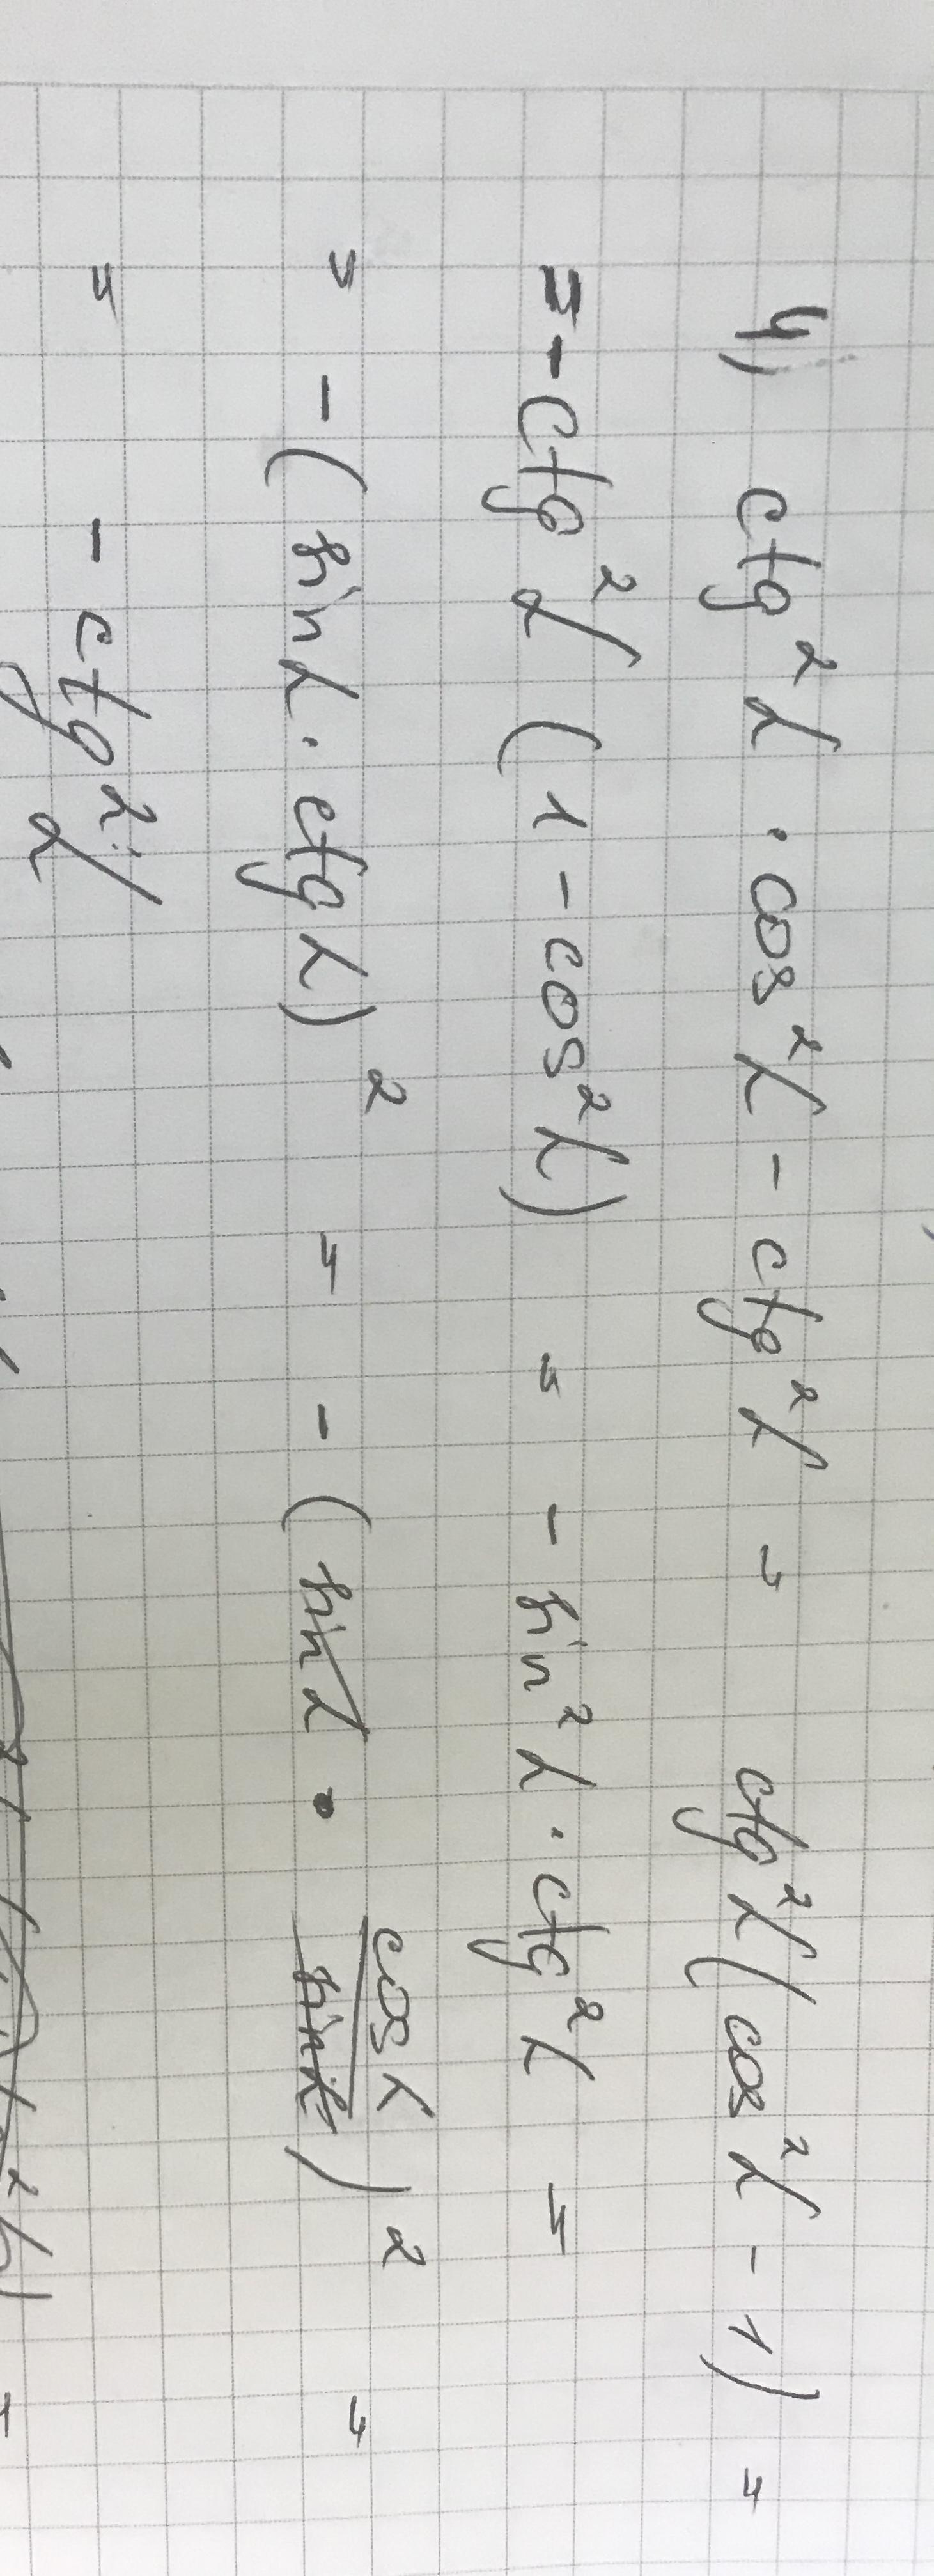 4) ctg²α · cos²α - ctg²α = ctg²α (cos²α - 1) =
= - ctg²α (1 - cos²α) = - sin²α · ctg²α =
= - (sinα · ctgα)² = - (sinα · cosα/sinα)² =
= - ctg²α